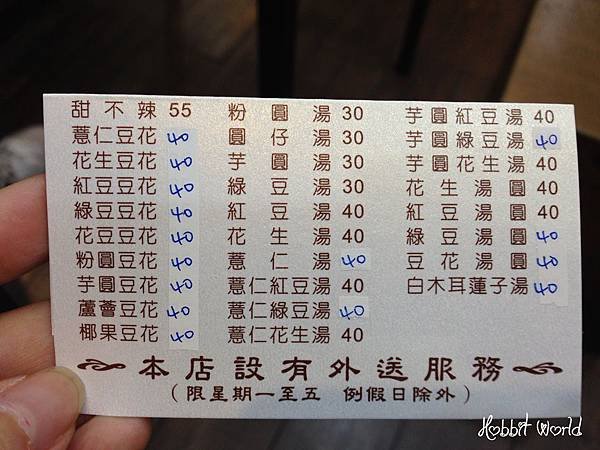 甜不辣 55
薏仁豆花 40
花生豆花 40
紅豆豆花 40
綠豆豆花 40
花豆豆花 40
粉圓豆花 40
芋圓豆花 40
蘆薈豆花 40
椰果豆花 40
粉圓湯 30
圓仔湯 30
芋圓湯 30
綠豆湯 30
紅豆湯 40
花生湯 40
薏仁湯 40
薏仁紅豆湯 40
薏仁綠豆湯 40
薏仁花生湯 40
芋圓紅豆湯 40
芋圓綠豆湯 40
芋圓花生湯 40
花生湯圓 40
紅豆湯圓 40
綠豆湯圓 40
豆花湯圓 40
白木耳蓮子湯 40
本店設有外送服務
(限星期一至五 例假日除外)
Hobbit World